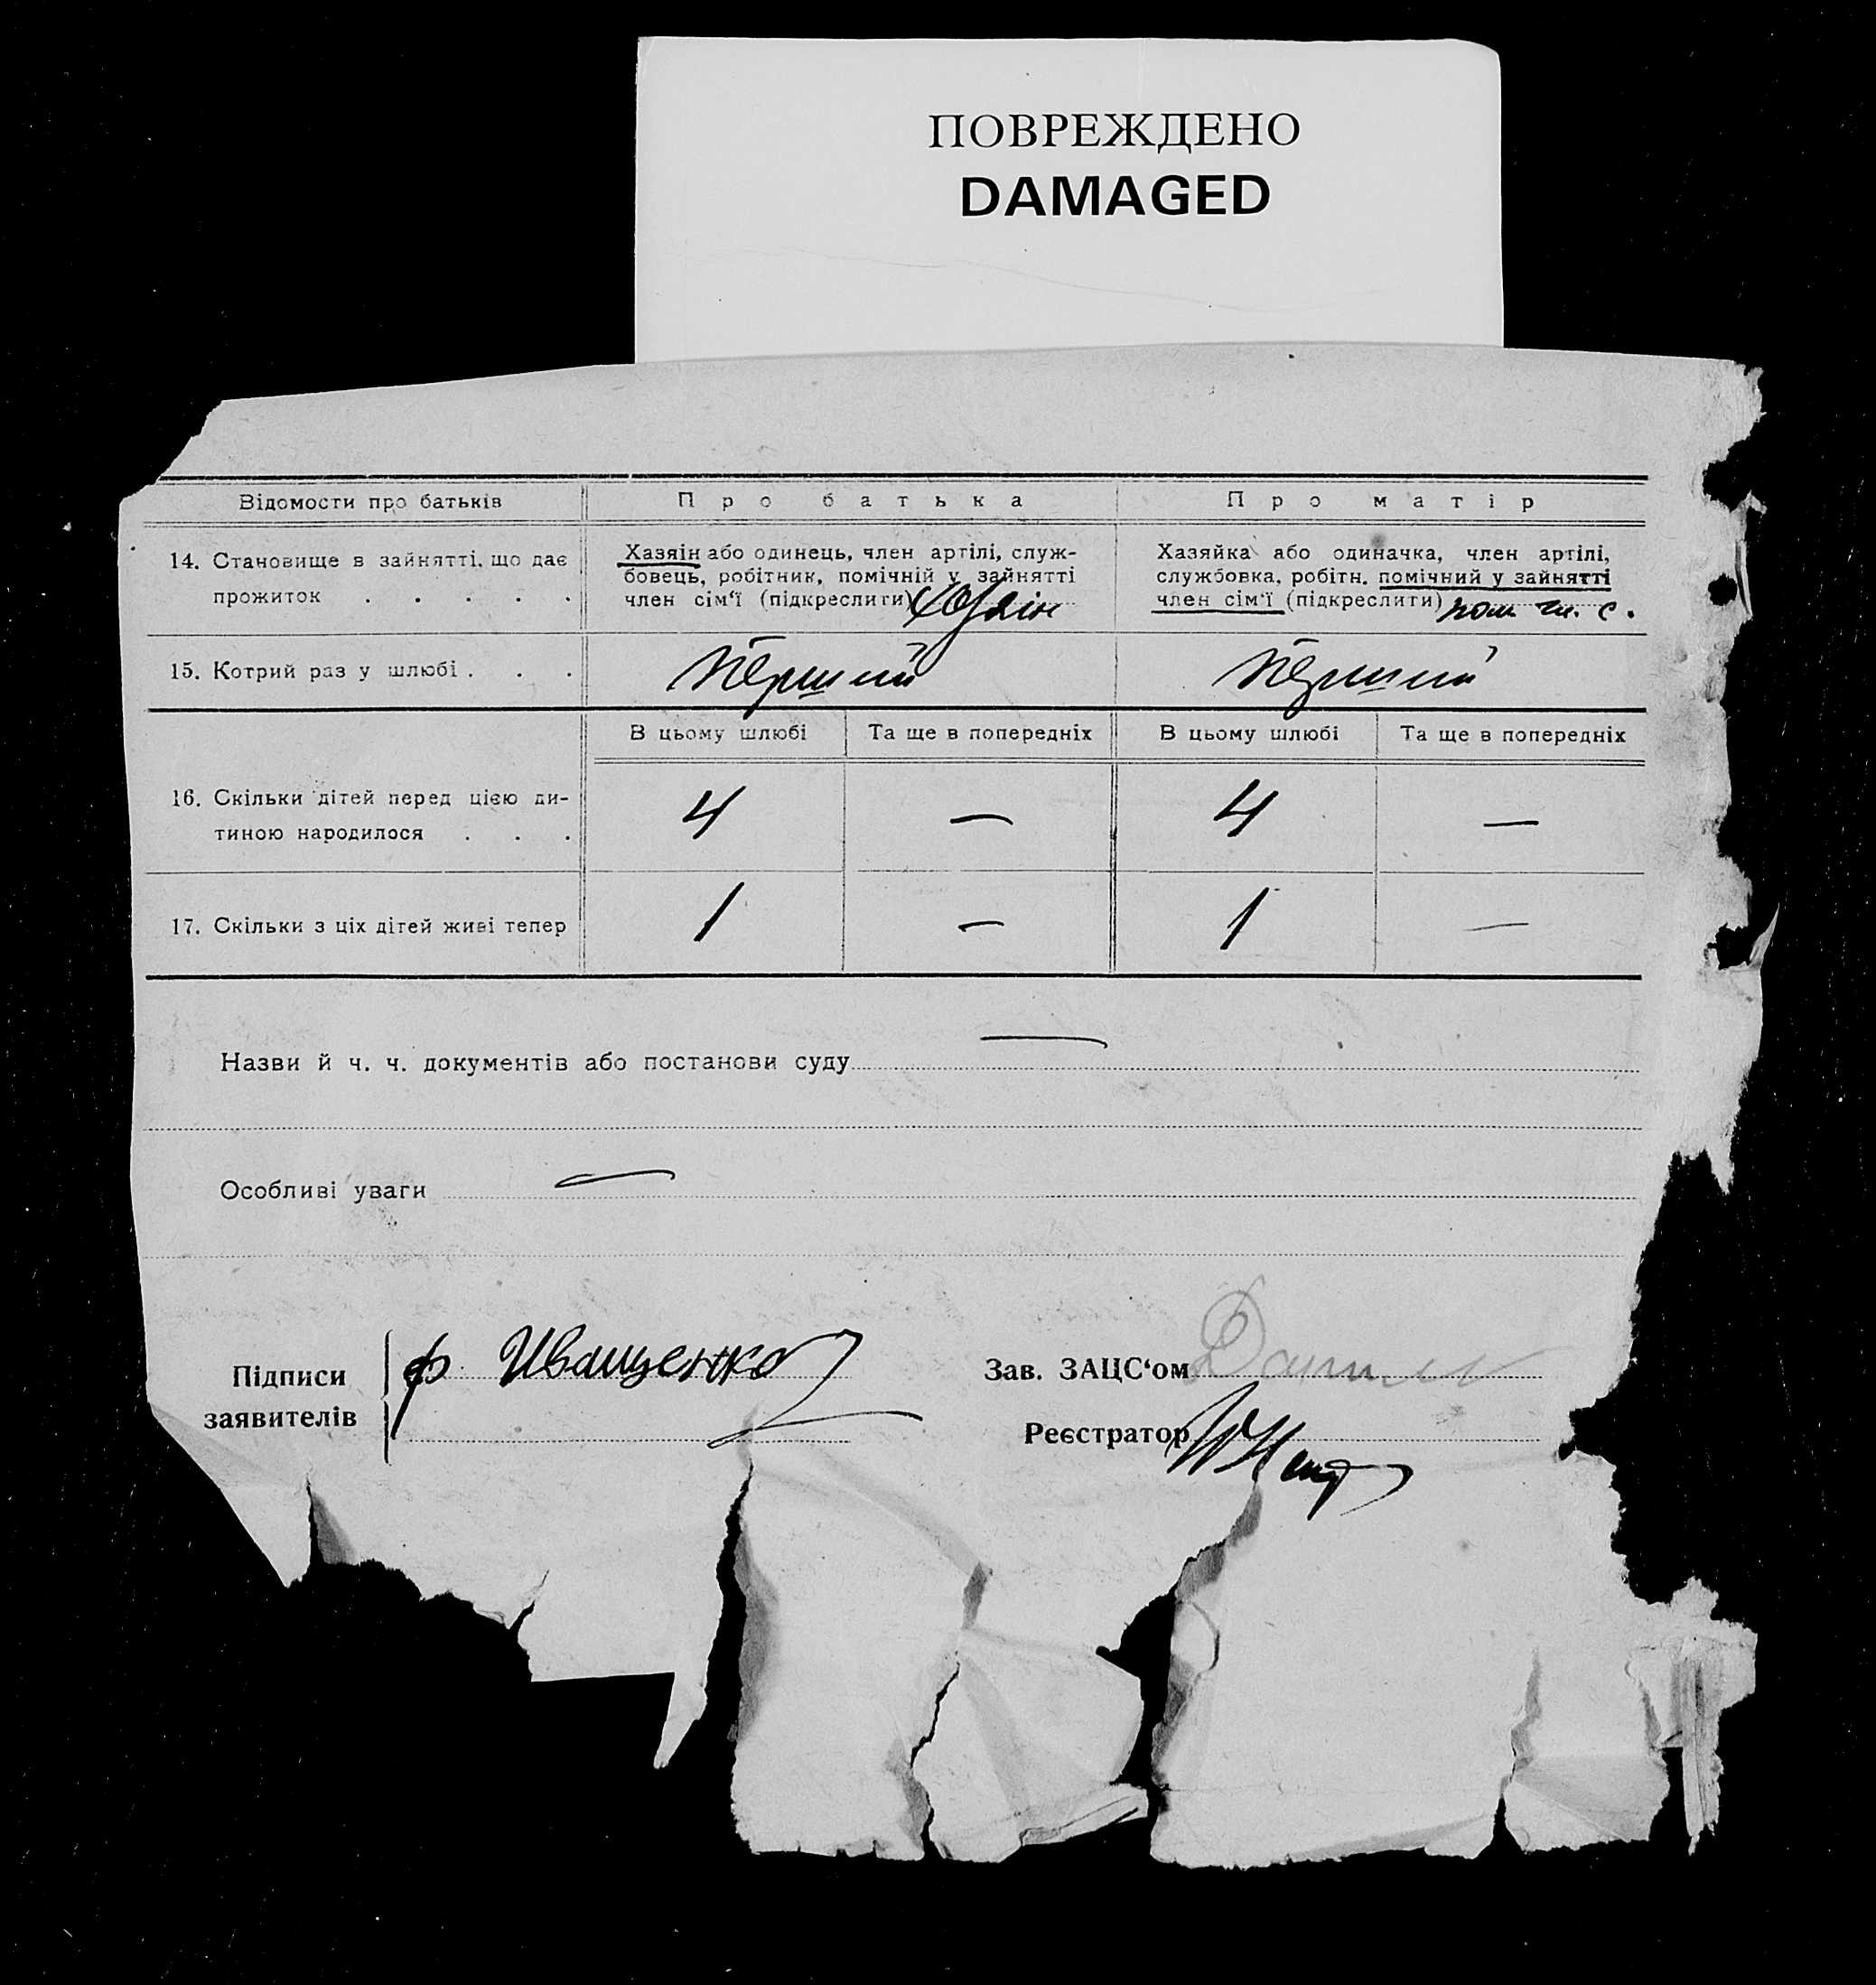 ПОВРЕЖДЕНО
DAMAGED
Відомости про батьків
Про батька
Про матір
14. Становище в зайнятті, що дає
прожиток . . . . .
Хазяін або одинець, член артілі, служ-
бовець, робітник, помічній у зайнятті
член сім'ї (підкреслити) Хазяін
Хазяйка або одиначка, член артілі,
службовка, робітн. помічний у зайнятті
член сім'ї (підкреслити) пом. чл. с.
15. Котрий раз у шлюбі . . .
перший
перший
В цьому шлюбі
Та ще в попередніх
В цьому шлюбі
Та ще в попередніх
16. Скільки дітей перед цією ди-
тиною народилося . . .
4
—
4
—
17. Скільки з ціх дітей живі тепер
1
—
1
—
Назви й ч. ч. документів або постанови суду —
Особливі уваги —
Підписи
заявителів
ф. Иващенко
Зав. ЗАЦС'ом
Реєстратор